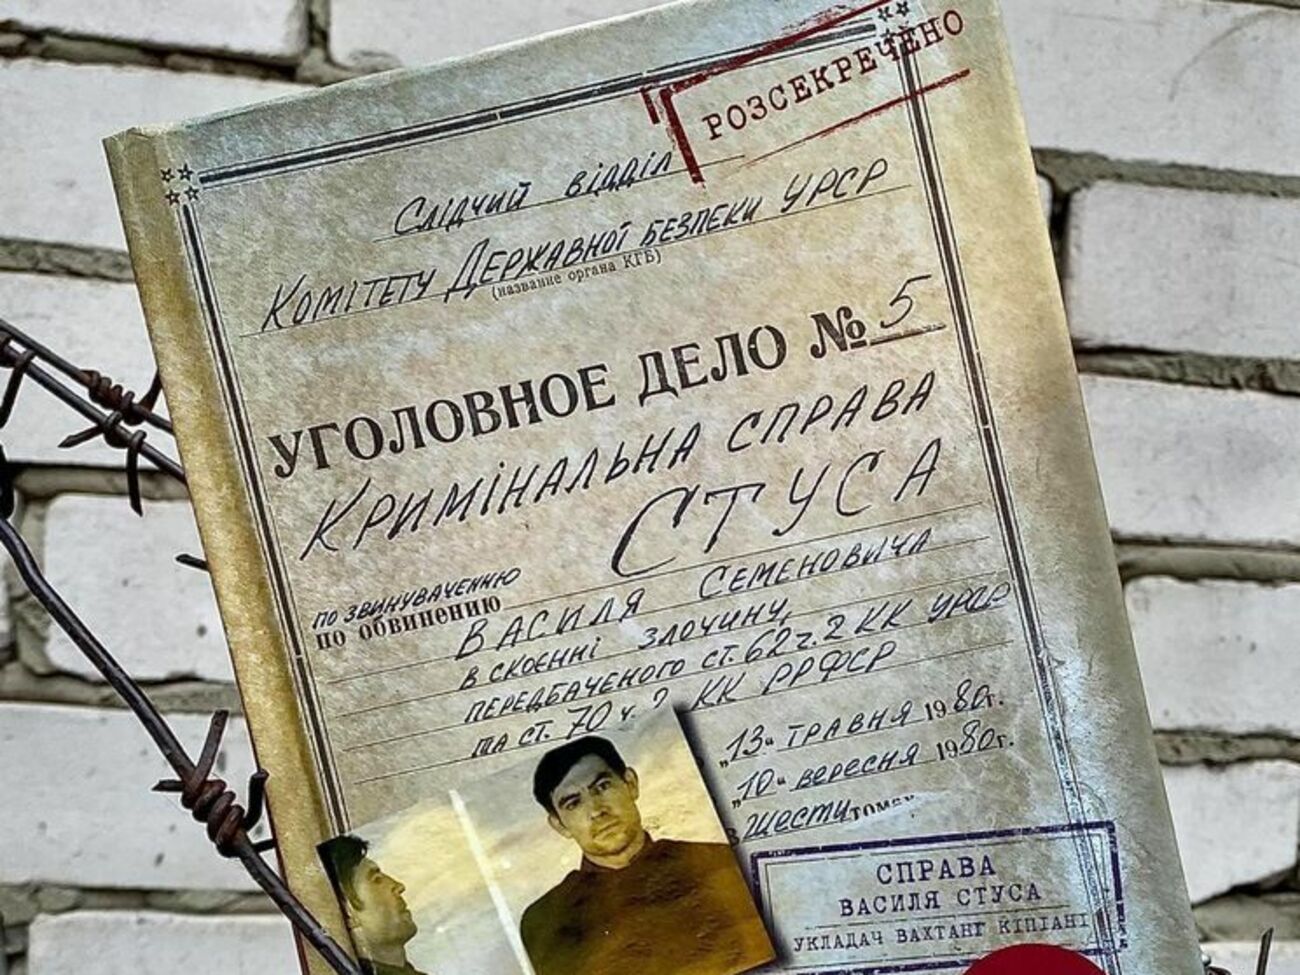 РОЗСЕКРЕЧЕНО
Слідчий відділ
Комітету Державної безпеки УРСР
(название органа КГБ)
УГОЛОВНОЕ ДЕЛО № 5
Кримінальна справа
Стуса
по звинуваченню
по обвинению
Василя Семеновича
в скоєнні злочину,
передбаченого ст. 62 ч. 2 КК УРСР
та ст. 70 ч. 2 КК РРФСР
„13“ травня 1980г.
„10“ вересня 1980г.
в шести томах
СПРАВА
ВАСИЛЯ СТУСА
УКЛАДАЧ ВАХТАНГ КІПІАНІ